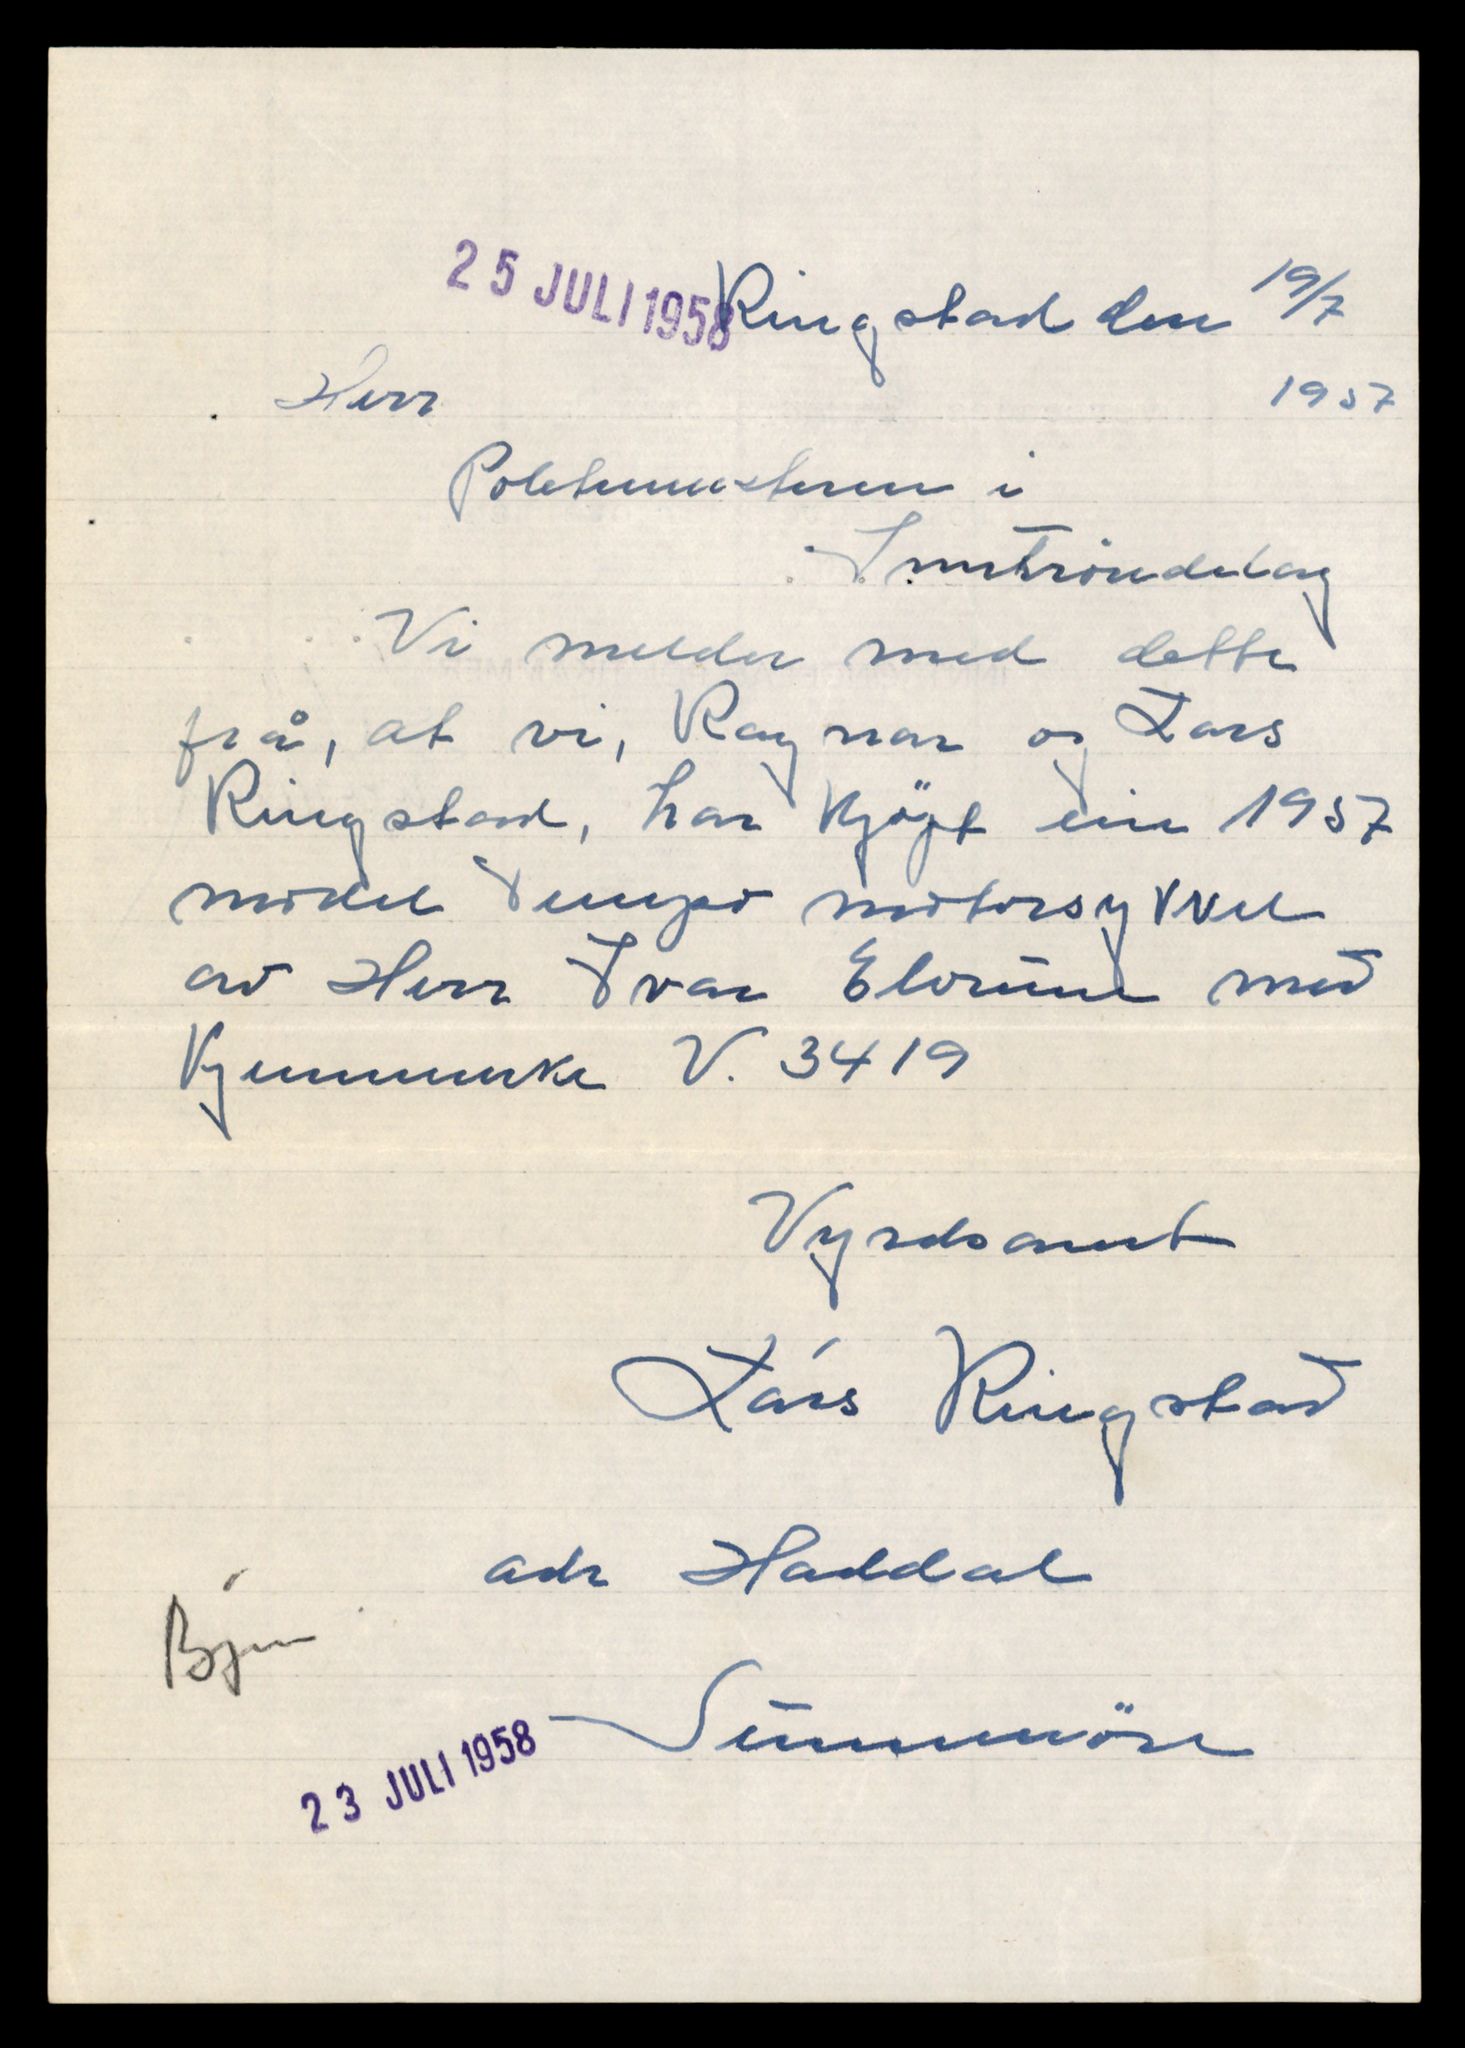 25 JULI 1958 Ringstad den 19/7
Herr 1957
Politimesteren i
Inntröndelag
Vi melder med dette
frå, at vi, Ragnar og Lars
Ringstad, har kjöpt ein 1957
model Tempo motorsykkel
av Herr Ivar
med
kjennmerke V. 3419
Vyrdsamt
Lars Ringstad
adr Haddal
Sunnmöre
23 JULI 1958